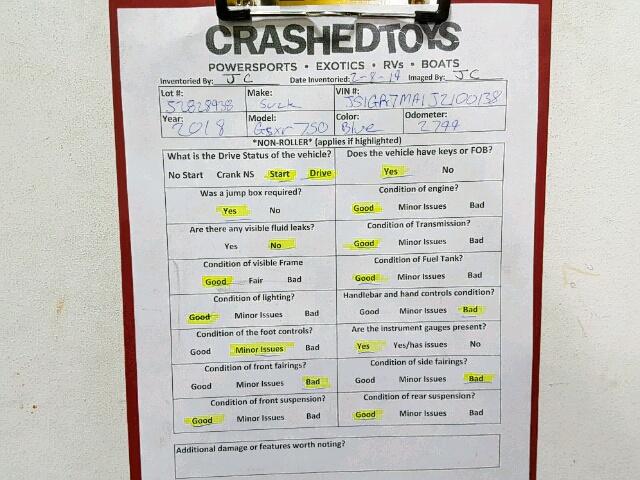 CRASHEDTOYS
POWERSPORTS • EXOTICS • RVs • BOATS
Inventoried By: JC Date Inventoried: 2-8-19 Imaged By: JC
Lot #: Make: VIN #:
52828938 Suzk JS1GR7MA1J2100138
Year: Model: Color: Odometer:
2018 Gsxr 750 Blue 2744
*NON-ROLLER* (applies if highlighted)
What is the Drive Status of the vehicle? Does the vehicle have keys or FOB?
No Start Crank NS Start Drive Yes No
Was a jump box required? Condition of engine?
Yes No Good Minor Issues Bad
Are there any visible fluid leaks? Condition of Transmission?
Yes No Good Minor Issues Bad
Condition of visible Frame Condition of Fuel Tank?
Good Fair Bad Good Minor Issues Bad
Condition of lighting? Handlebar and hand controls condition?
Good Minor Issues Bad Good Minor Issues Bad
Condition of the foot controls? Are the instrument gauges present?
Good Minor Issues Bad Yes Yes/has issues No
Condition of front fairings? Condition of side fairings?
Good Minor Issues Bad Good Minor Issues Bad
Condition of front suspension? Condition of rear suspension?
Good Minor Issues Bad Good Minor Issues Bad
Additional damage or features worth noting?